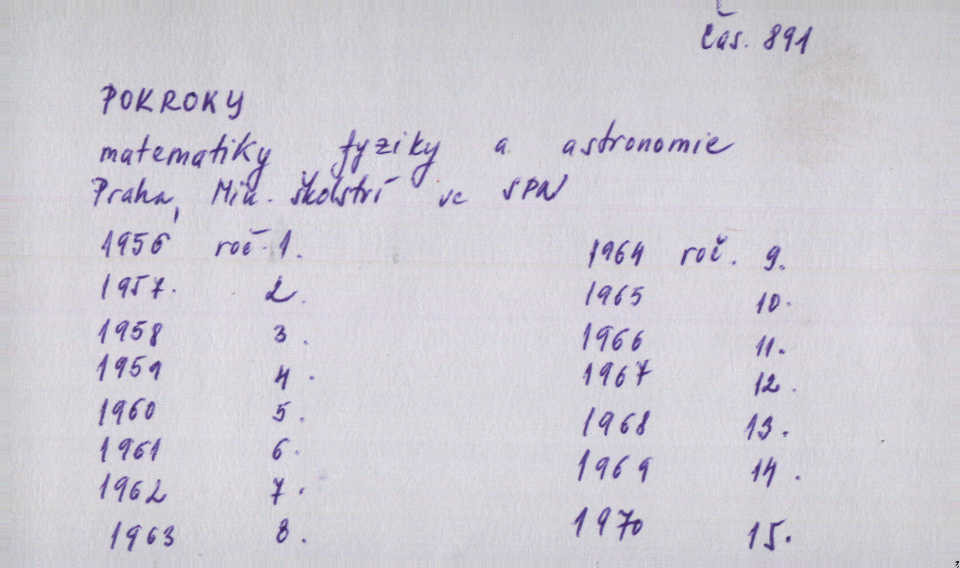 čas. 891
POKROKY
matematiky fyziky a astronomie
Praha, Min. školství ve SPN
1956 roč. 1. 1964 roč. 9.
1957. 2. 1965 10.
1958 3. 1966 11.
1959 4. 1967 12.
1960 5. 1968 13.
1961 6. 1969 14.
1962 7. 1970 15.
1963 8.